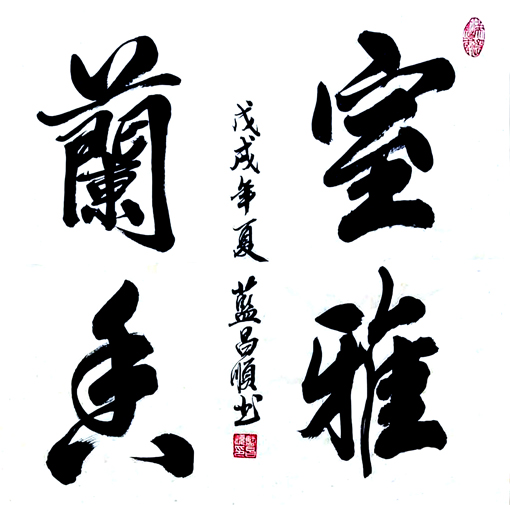 室雅
蘭香
戊戌年夏 藍昌順书